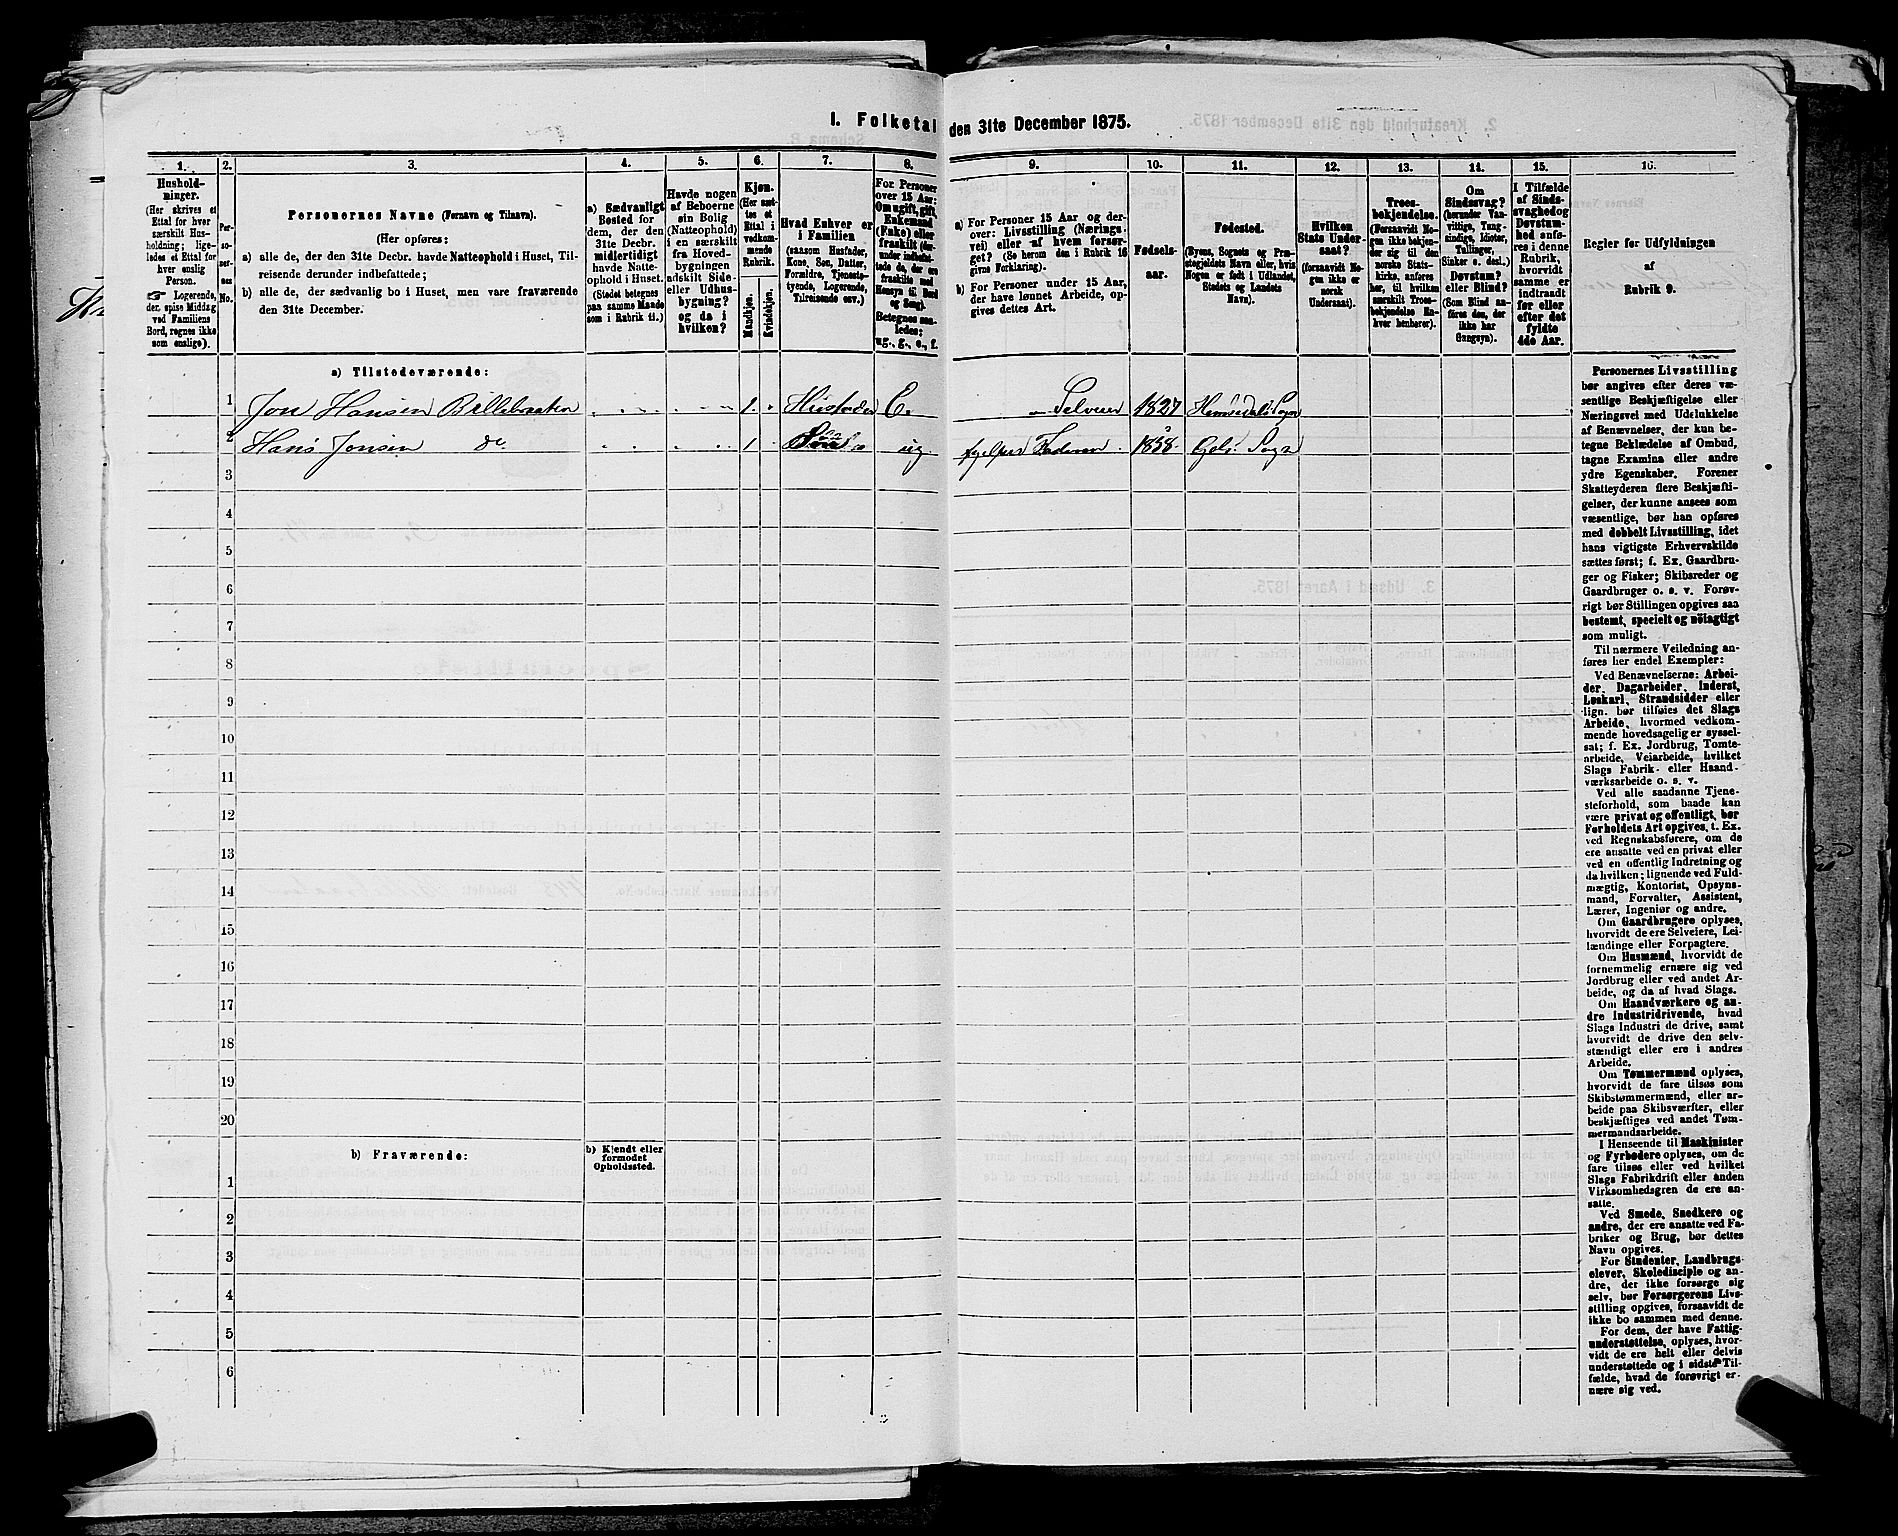 I. Folketal den 31te December 1875.
1. 2. 3. 4. 5. 6. 7. 8. 9. 10. 11. 12. 13. 14. 15. 16.
Hushold-
ninger.
(Her skrives et
Ettal for hver
særskilt Hus-
holdning; lige-
ledes et Ettal for
hver enslig
Person.
☞ Logerende,
der spise Middag
ved Familiens
Bord, regnes ikke
som enslige).
Per-
so-
ner-
nes
No.
Personernes Navne (Fornavn og Tilnavn).
(Her opføres:
a) alle de, der den 31te Decbr. havde Natteophold i Huset, Til-
reisende derunder indbefattede;
b) alle de, der sædvanlig bo i Huset, men vare fraværende
den 31te December.
a) Sædvanligt
Bosted for
dem, der den
31te Decbr.
midlertidigt
havde Natte-
ophold i Huset.
(Stedet betegnes
paa samme Maade
som i Rubrik 11.)
Havde nogen
af Beboerne
sin Bolig
(Natteophold)
i en særskilt
fra Hoved-
bygningen
adskilt Side-
eller Udhus-
bygning?
og da i
hvilken?
Kjøn.
(Her sæt-
tes et
Ettal i
vedkom-
mende
Rubrik.
Mandkjøn.
Kvindekjøn.
Hvad Enhver er
i Familien
(saasom Husfader,
Kone, Søn, Datter,
Forældre, Tjeneste-
tyende, Logerende,
Tilreisende osv.)
For Personer
over 15 Aar:
Om ugift, gift,
Enkemand
(Enke) eller
fraskilt
Betegnes saa-
ledes:
ug., g., e., f.
a) For Personer 15 Aar og der-
over: Livsstilling (Nærings-
vei) eller af hvem forsør-
get? (Se herom den i Rubrik 16
givne Forklaring).
b) For Personer under 15 Aar,
der have lønnet Arbeide, op-
gives dettes Art.
Fødsels-
aar.
Fødested.
(Byens, Sognets og Præ-
stegjeldets Navn eller, hvis
Nogen er født i Udlandet,
Stedets og Landets
Navn).
Hvilken
Stats Under-
saat?
(forsaavidt No-
gen ikke er
norsk
Undersaat).
Troes-
bekjendelse.
(Forsaavidt No-
gen ikke bekjen-
der sig til den
norske Stats-
kirke, anføres
her, til hvilken
særskilt Troes-
bekjendelse En-
hver henhører).
Om
Sindssvag?
(herunder Van-
vittige, Tung-
sindige, Idioter,
Tullinger,
Sinker o. desl.)
Døvstum?
eller Blind?
(Som Blind an-
føres den, der
ikke har
Gangsyn).
I Tilfælde
af Sinds-
svaghed og
Døvstum-
hed anfø-
res i denne
Rubrik,
hvorvidt
samme er
indtraadt
før eller
efter det
fyldte
4de Aar.
Regler for Udfyldningen
af
Rubrik 9.
a) Tilstedeværende:
1 Jon Hansen Billebraaten 1. Husfader E. Selveier 1827 Hemsedals Sogn
2 Hans Jonsen do 1 Søn ug. hjelper Faderen 1858 Gols Sogn
3
4
5
6
7
8
9
10
11
12
13
14
15
16
17
18
19
20
b) Fraværende:
b) Kjendt eller
formodet
Opholdssted.
1
2
3
4
5
6
Personernes Livsstilling
bør angives efter deres væ-
sentlige Beskjæftigelse eller
Næringsvei med Udelukkelse
af Benævnelser, der kun be-
tegne Beklædelse af Ombud,
tagne Examina eller andre
ydre Egenskaber. Forener
Skatteyderen flere Beskjæfti-
gelser, der kunne ansees som
væsentlige, bør han opføres
med dobbelt Livsstilling, idet
hans vigtigste Erhvervskilde
sættes først; f. Ex. Gaardbru-
ger og Fisker; Skibsreder og
Gaardbruger o. s. v. Forøv-
rigt bør Stillingen opgives saa
bestemt, specielt og nøiagtigt
som muligt.
Til nærmere Veiledning an-
føres her endel Exempler:
Ved Benævnelserne: Arbei-
der, Dagarbeider, Inderst,
Løskarl, Strandsidder eller
lign. bør tilføies det Slags
Arbeide, hvormed vedkom-
mende hovedsagelig er syssel-
sat; f. Ex. Jordbrug, Tomte-
arbeide, Veiarbeide, hvilket
Slags Fabrik- eller Haand-
værksarbeide o. s. v.
Ved alle saadanne Tjene-
steforhold, som baade kan
være privat og offentligt, bør
Forholdets Art opgives, t. Ex.
ved Regnskabsførere, om de
ere ansatte ved en privat eller
ved en offentlig Indretning og
da hvilken; lignende ved Fuld-
mægtig, Kontorist, Opsyns-
mand, Forvalter, Assistent,
Lærer, Ingeniør og andre.
Om Gaardbrugere oplyses,
hvorvidt de ere Selveiere, Lei-
lændinge eller Forpagtere.
Om Husmænd, hvorvidt de
fornemmelig ernære sig ved
Jordbrug eller ved andet Ar-
beide, og da af hvad Slags.
Om Haandværkere og an-
dre Industridrivende, hvad
Slags Industri de drive, samt
hvorvidt de drive den selv-
stændigt eller ere i andres
Arbeide.
Om Tømmermænd oplyses,
hvorvidt de fare tilsøs som
Skibstømmermænd, eller ar-
beide paa Skibsværfter, eller
beskjæftiges ved andet Tøm-
mermandsarbeide.
I Henseende til Maskinister
og Fyrbødere oplyses, om de
fare tilsøs eller ved hvilket
Slags Fabrikdrift eller anden
Virksomhedsgren de ere an-
satte.
Ved Smede, Snedkere og
andre, der ere ansatte ved Fa-
briker og Brug, bør dettes
Navn opgives.
For Studenter, Landbrugs-
elever, Skoledisciple og an-
dre, der ikke forsørge sig
selv, bør Forsørgerens Livs-
stilling opgives, forsaavidt de
ikke bo sammen med denne.
For dem, der have Fattig-
understøttelse, oplyses, hvor-
vidt de ere helt eller delvis
understøttede og i sidste Til-
fælde, hvad de forøvrigt er-
nære sig ved.